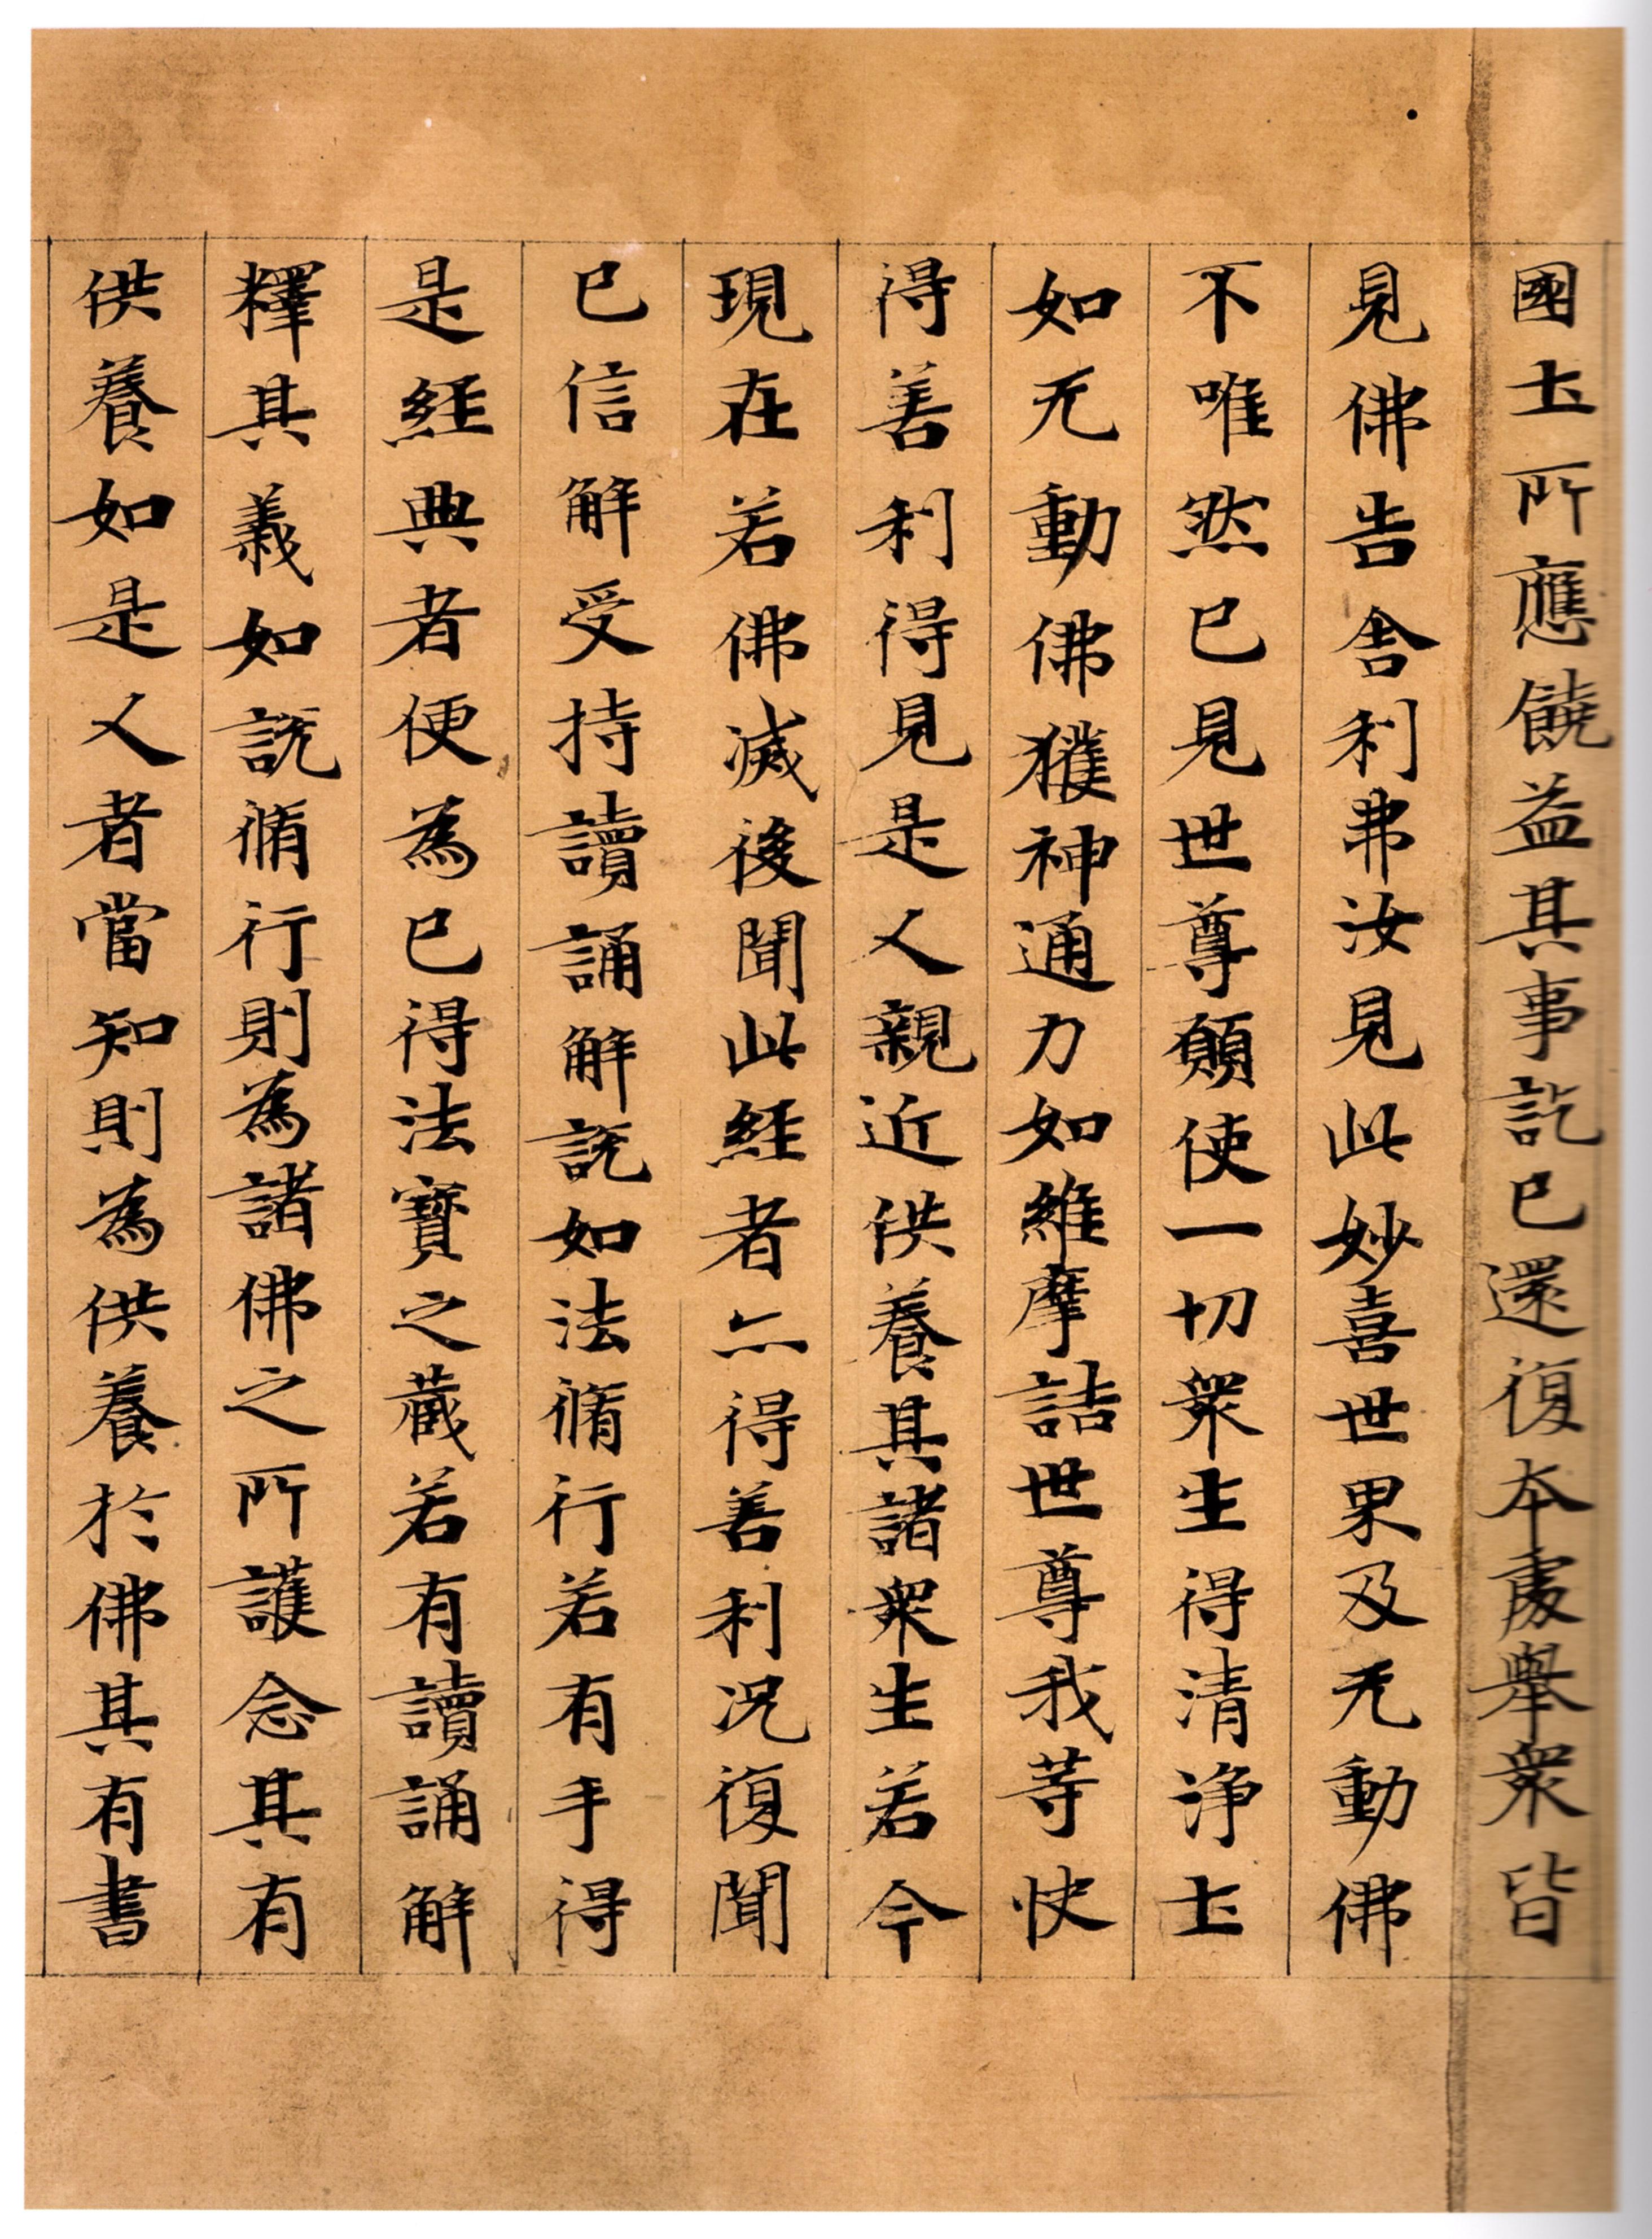 國土所應饒益其事訖已還復本處舉衆皆
見佛告舍利弗汝見此妙喜世界及无動佛
不唯然已見世尊願使一切衆生得清淨土
如无動佛獲神通力如維摩詰世尊我等快
得善利得見是人親近供養其諸衆生若今
現在若佛滅後聞此經者亦得善利況復聞
已信解受持讀誦解説如法脩行若有手得
是經典者便為已得法寶之藏若有讀誦解
釋其義如説脩行則為諸佛之所護念其有
供養如是人者當知則為供養於佛其有書